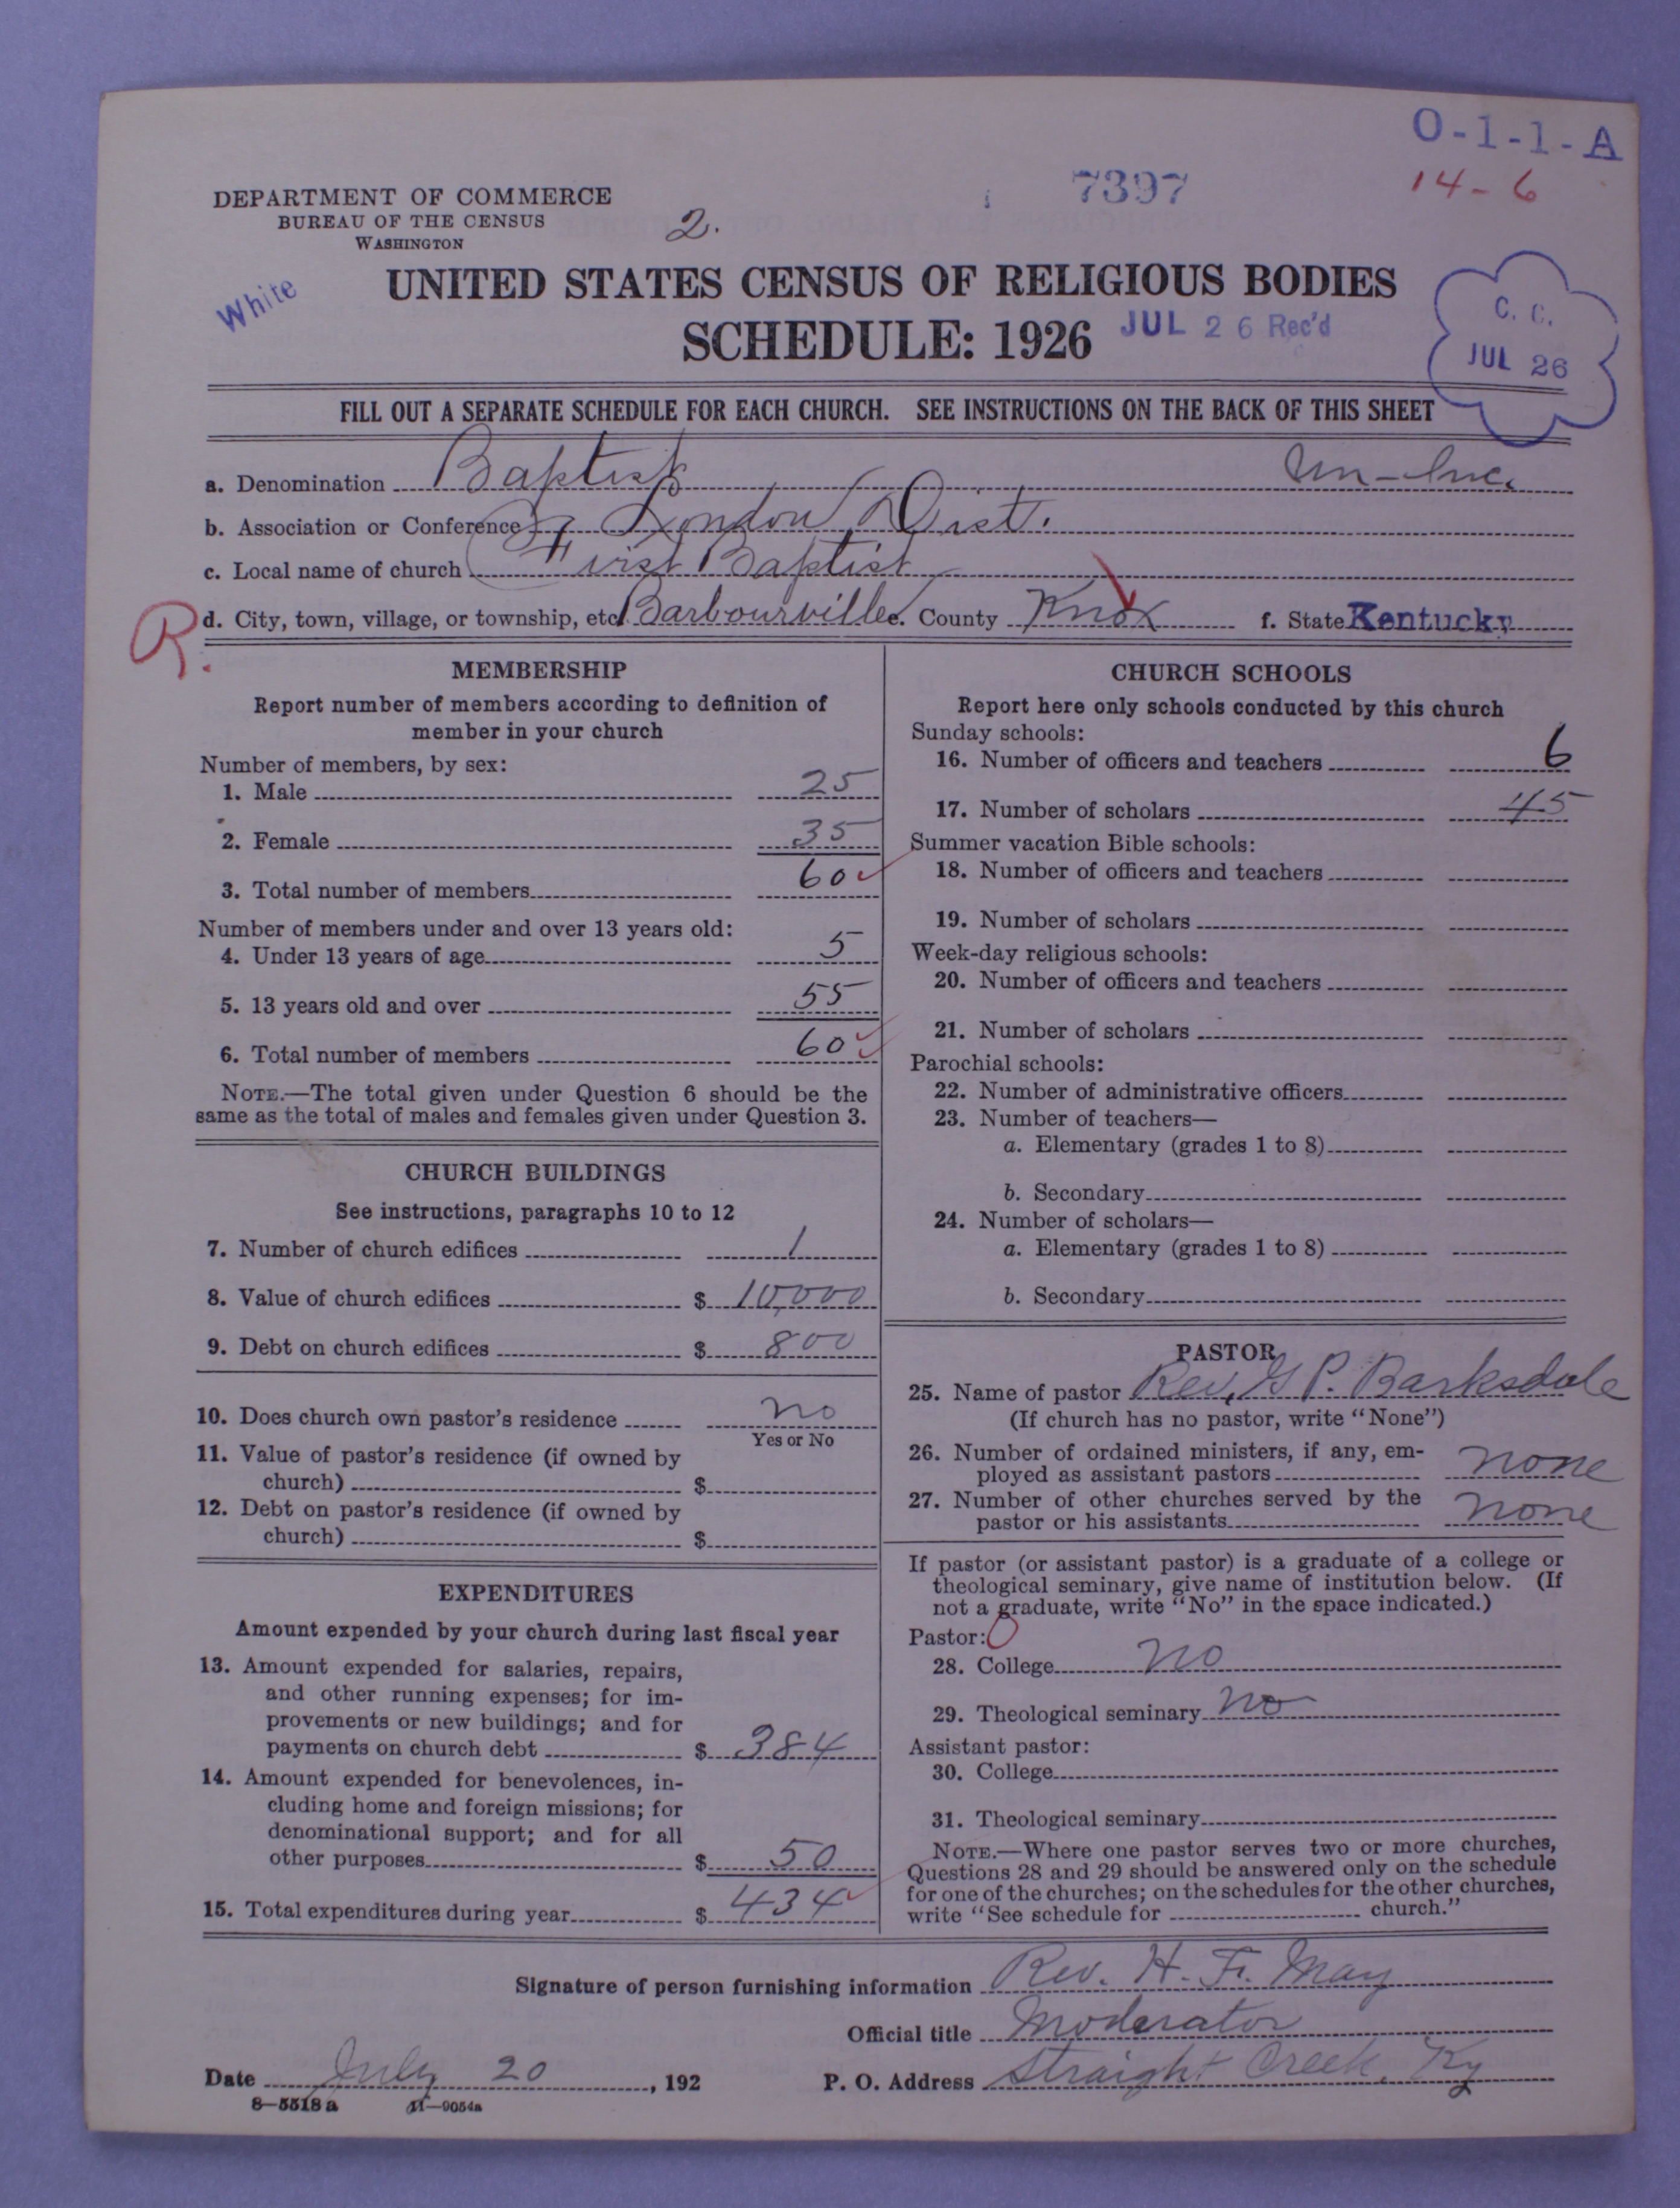 O-1-1-A
14-6
7397
DEPARTMENT OF COMMERCE
BUREAU OF THE CENSUS
WASHINGTON
2.
White
UNITED STATES CENSUS OF RELIGIOUS BODIES
SCHEDULE: 1926
JUL 26 Rec'd
C. C.
JUL 26
FILL OUT A SEPARATE SCHEDULE FOR EACH CHURCH. SEE INSTRUCTIONS ON THE BACK OF THIS SHEET
a. Denomination Baptist Un-Inc.
b. Association or Conference London Dist.
c. Local name of church First Baptist
R.
d. City, town, village, or township, etc. Barbourville e. County Knox f. State Kentucky
MEMBERSHIP
Report number of members according to definition of
member in your church
Number of members, by sex:
1. Male 25
2. Female 35
3. Total number of members 60
Number of members under and over 13 years old:
4. Under 13 years of age 5
5. 13 years old and over 55
6. Total number of members 60
NOTE.—The total given under Question 6 should be the
same as the total of males and females given under Question 3.
CHURCH BUILDINGS
See instructions, paragraphs 10 to 12
7. Number of church edifices 1
8. Value of church edifices $ 10,000
9. Debt on church edifices $ 800
10. Does church own pastor's residence no
Yes or No
11. Value of pastor's residence (if owned by
church) $
12. Debt on pastor's residence (if owned by
church) $
EXPENDITURES
Amount expended by your church during last fiscal year
13. Amount expended for salaries, repairs,
and other running expenses; for im-
provements or new buildings; and for
payments on church debt $ 384
14. Amount expended for benevolences, in-
cluding home and foreign missions; for
denominational support; and for all
other purposes $ 50
15. Total expenditures during year $ 434
CHURCH SCHOOLS
Report here only schools conducted by this church
Sunday schools:
16. Number of officers and teachers 6
17. Number of scholars 45
Summer vacation Bible schools:
18. Number of officers and teachers
19. Number of scholars
Week-day religious schools:
20. Number of officers and teachers
21. Number of scholars
Parochial schools:
22. Number of administrative officers
23. Number of teachers—
a. Elementary (grades 1 to 8)
b. Secondary
24. Number of scholars—
a. Elementary (grades 1 to 8)
b. Secondary
PASTOR
25. Name of pastor Rev. G P. Barksdale
(If church has no pastor, write "None")
26. Number of ordained ministers, if any, em-
ployed as assistant pastors none
27. Number of other churches served by the
pastor or his assistants none
If pastor (or assistant pastor) is a graduate of a college or
theological seminary, give name of institution below. (If
not a graduate, write "No" in the space indicated.)
Pastor: 0
28. College no
29. Theological seminary no
Assistant pastor:
30. College
31. Theological seminary
NOTE.—Where one pastor serves two or more churches,
Questions 28 and 29 should be answered only on the schedule
for one of the churches; on the schedules for the other churches,
write "See schedule for church."
Signature of person furnishing information Rev. H. F. May
Official title Moderator
Date July 20, 192
P. O. Address Straight Creek, Ky
8-5518a 11-9054a